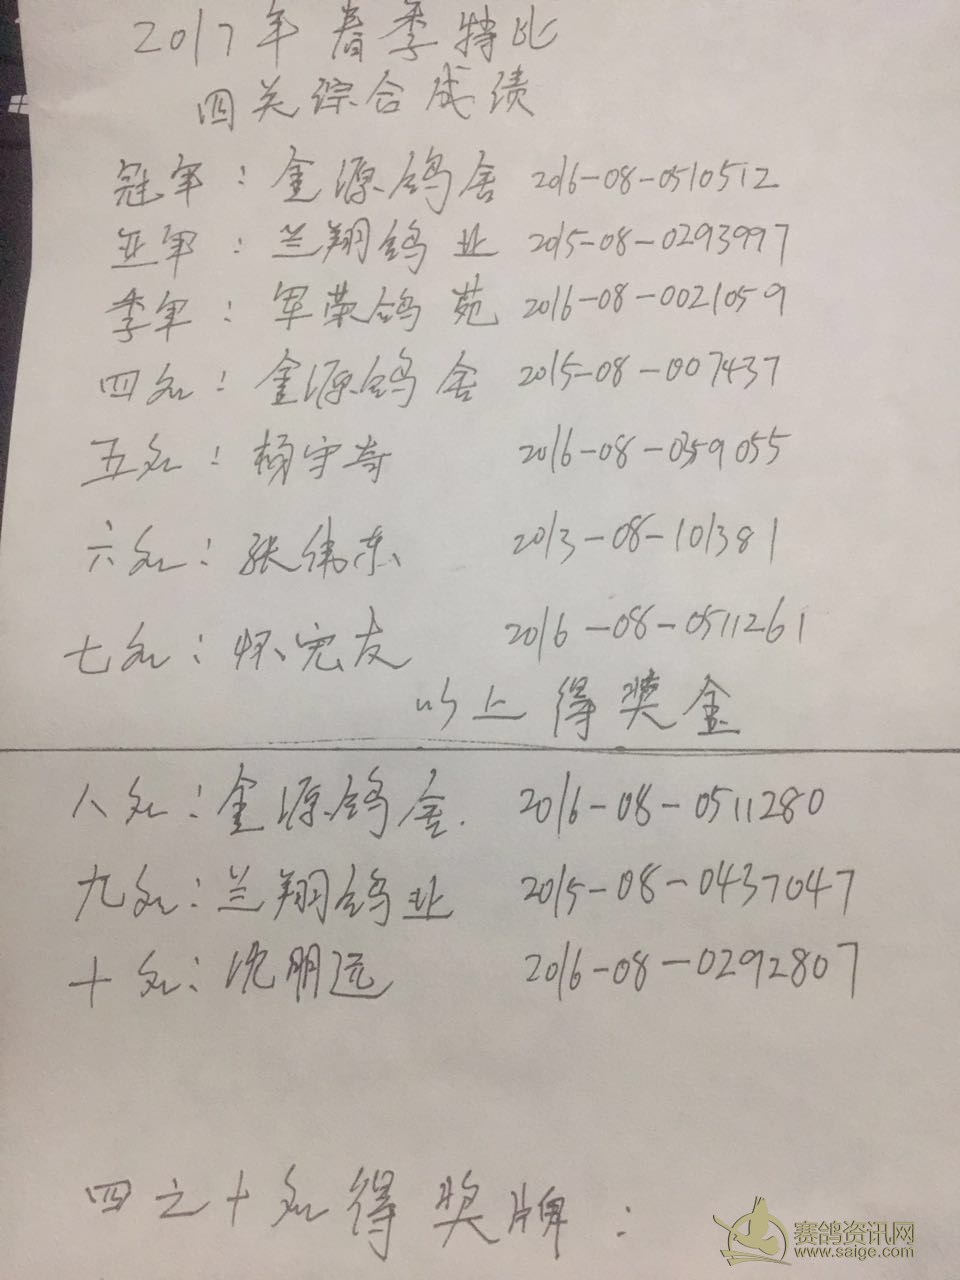 2017年春季特比
四关综合成绩
冠军：金源鸽舍 2016-08-0510512
亚军：兰翔鸽业 2015-08-0293997
季军：军荣鸽苑 2016-08-0021059
四名：金源鸽舍 2015-08-007437
五名：杨守奇 2016-08-0359055
六名：张伟东 2013-08-101381
七名：怀宪友 2016-08-0511261
以上得奖金
八名：金源鸽舍. 2016-08-0511280
九名：兰翔鸽业 2015-08-0437047
十名：沈朋远 2016-08-0292807
四之十名得奖牌：
赛鸽资讯网
www.saige.com